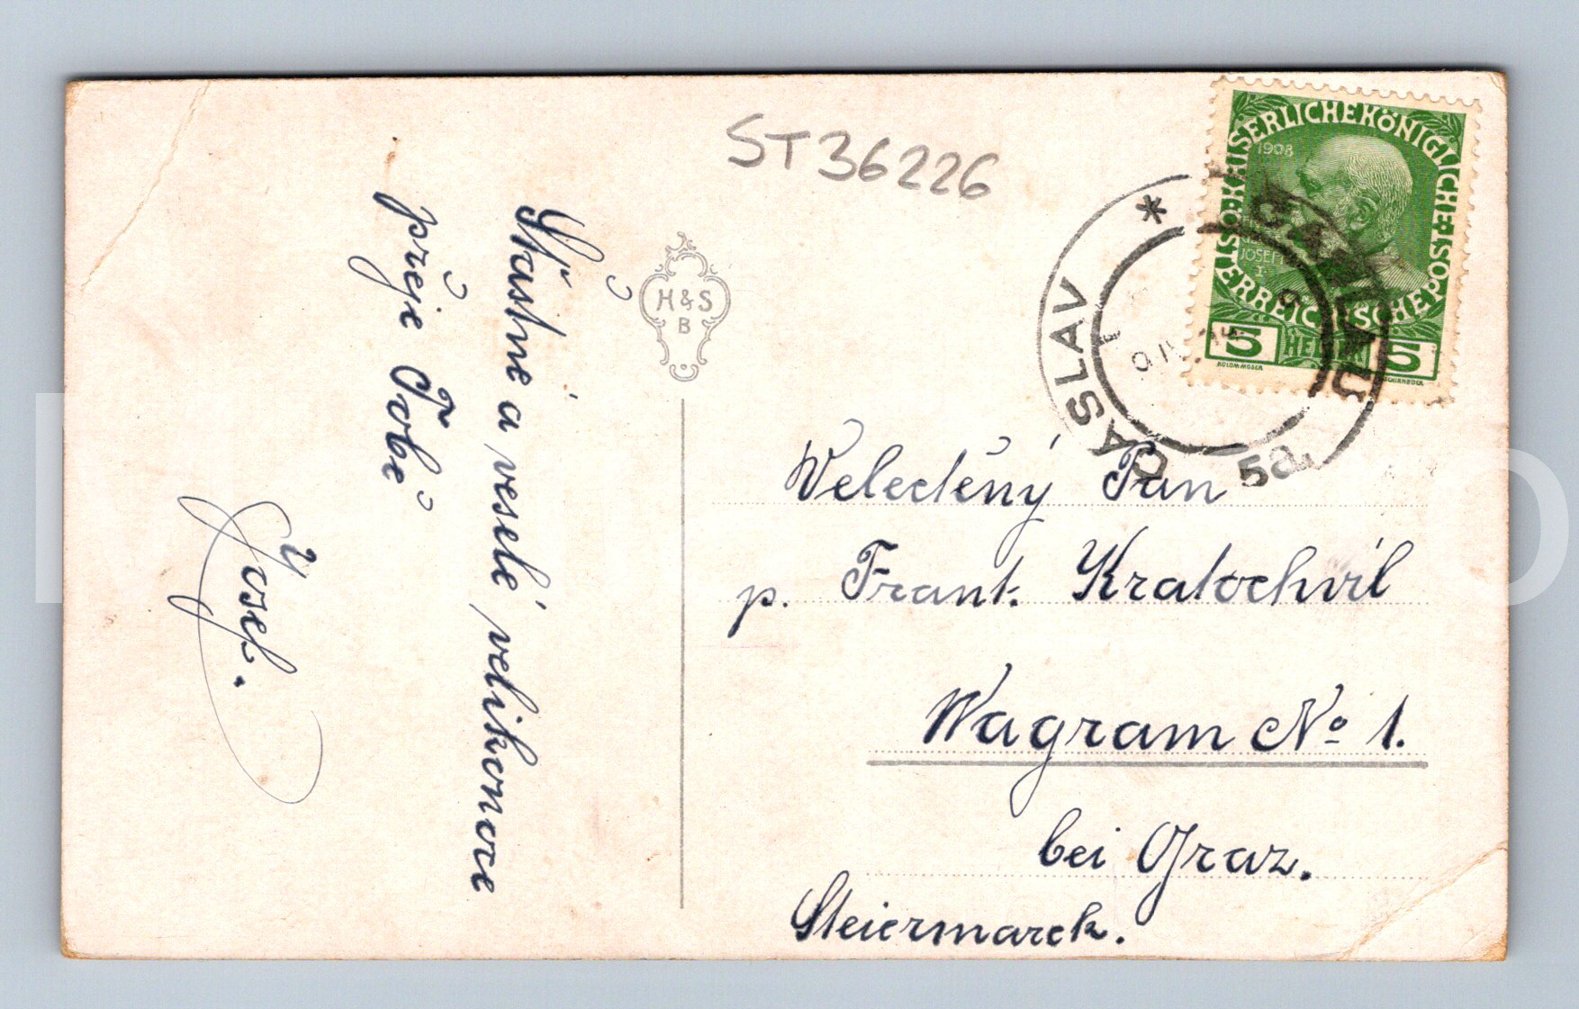 ST36226
Šťastné a veselé velikonoce
přeje Tobě
Josef.
H & S
B
KAISERLICHE KÖNIGLICHE
ÖSTERREICHISCHE
1908
JOSEF
I
5 HELLER 5
KOLOM.MOSER
ČASLAV
ČÁSLAV
5a
Veleděný Pan
p. Frant. Kratochvíl
Wagram No 1.
bei Graz.
Steiermarck.